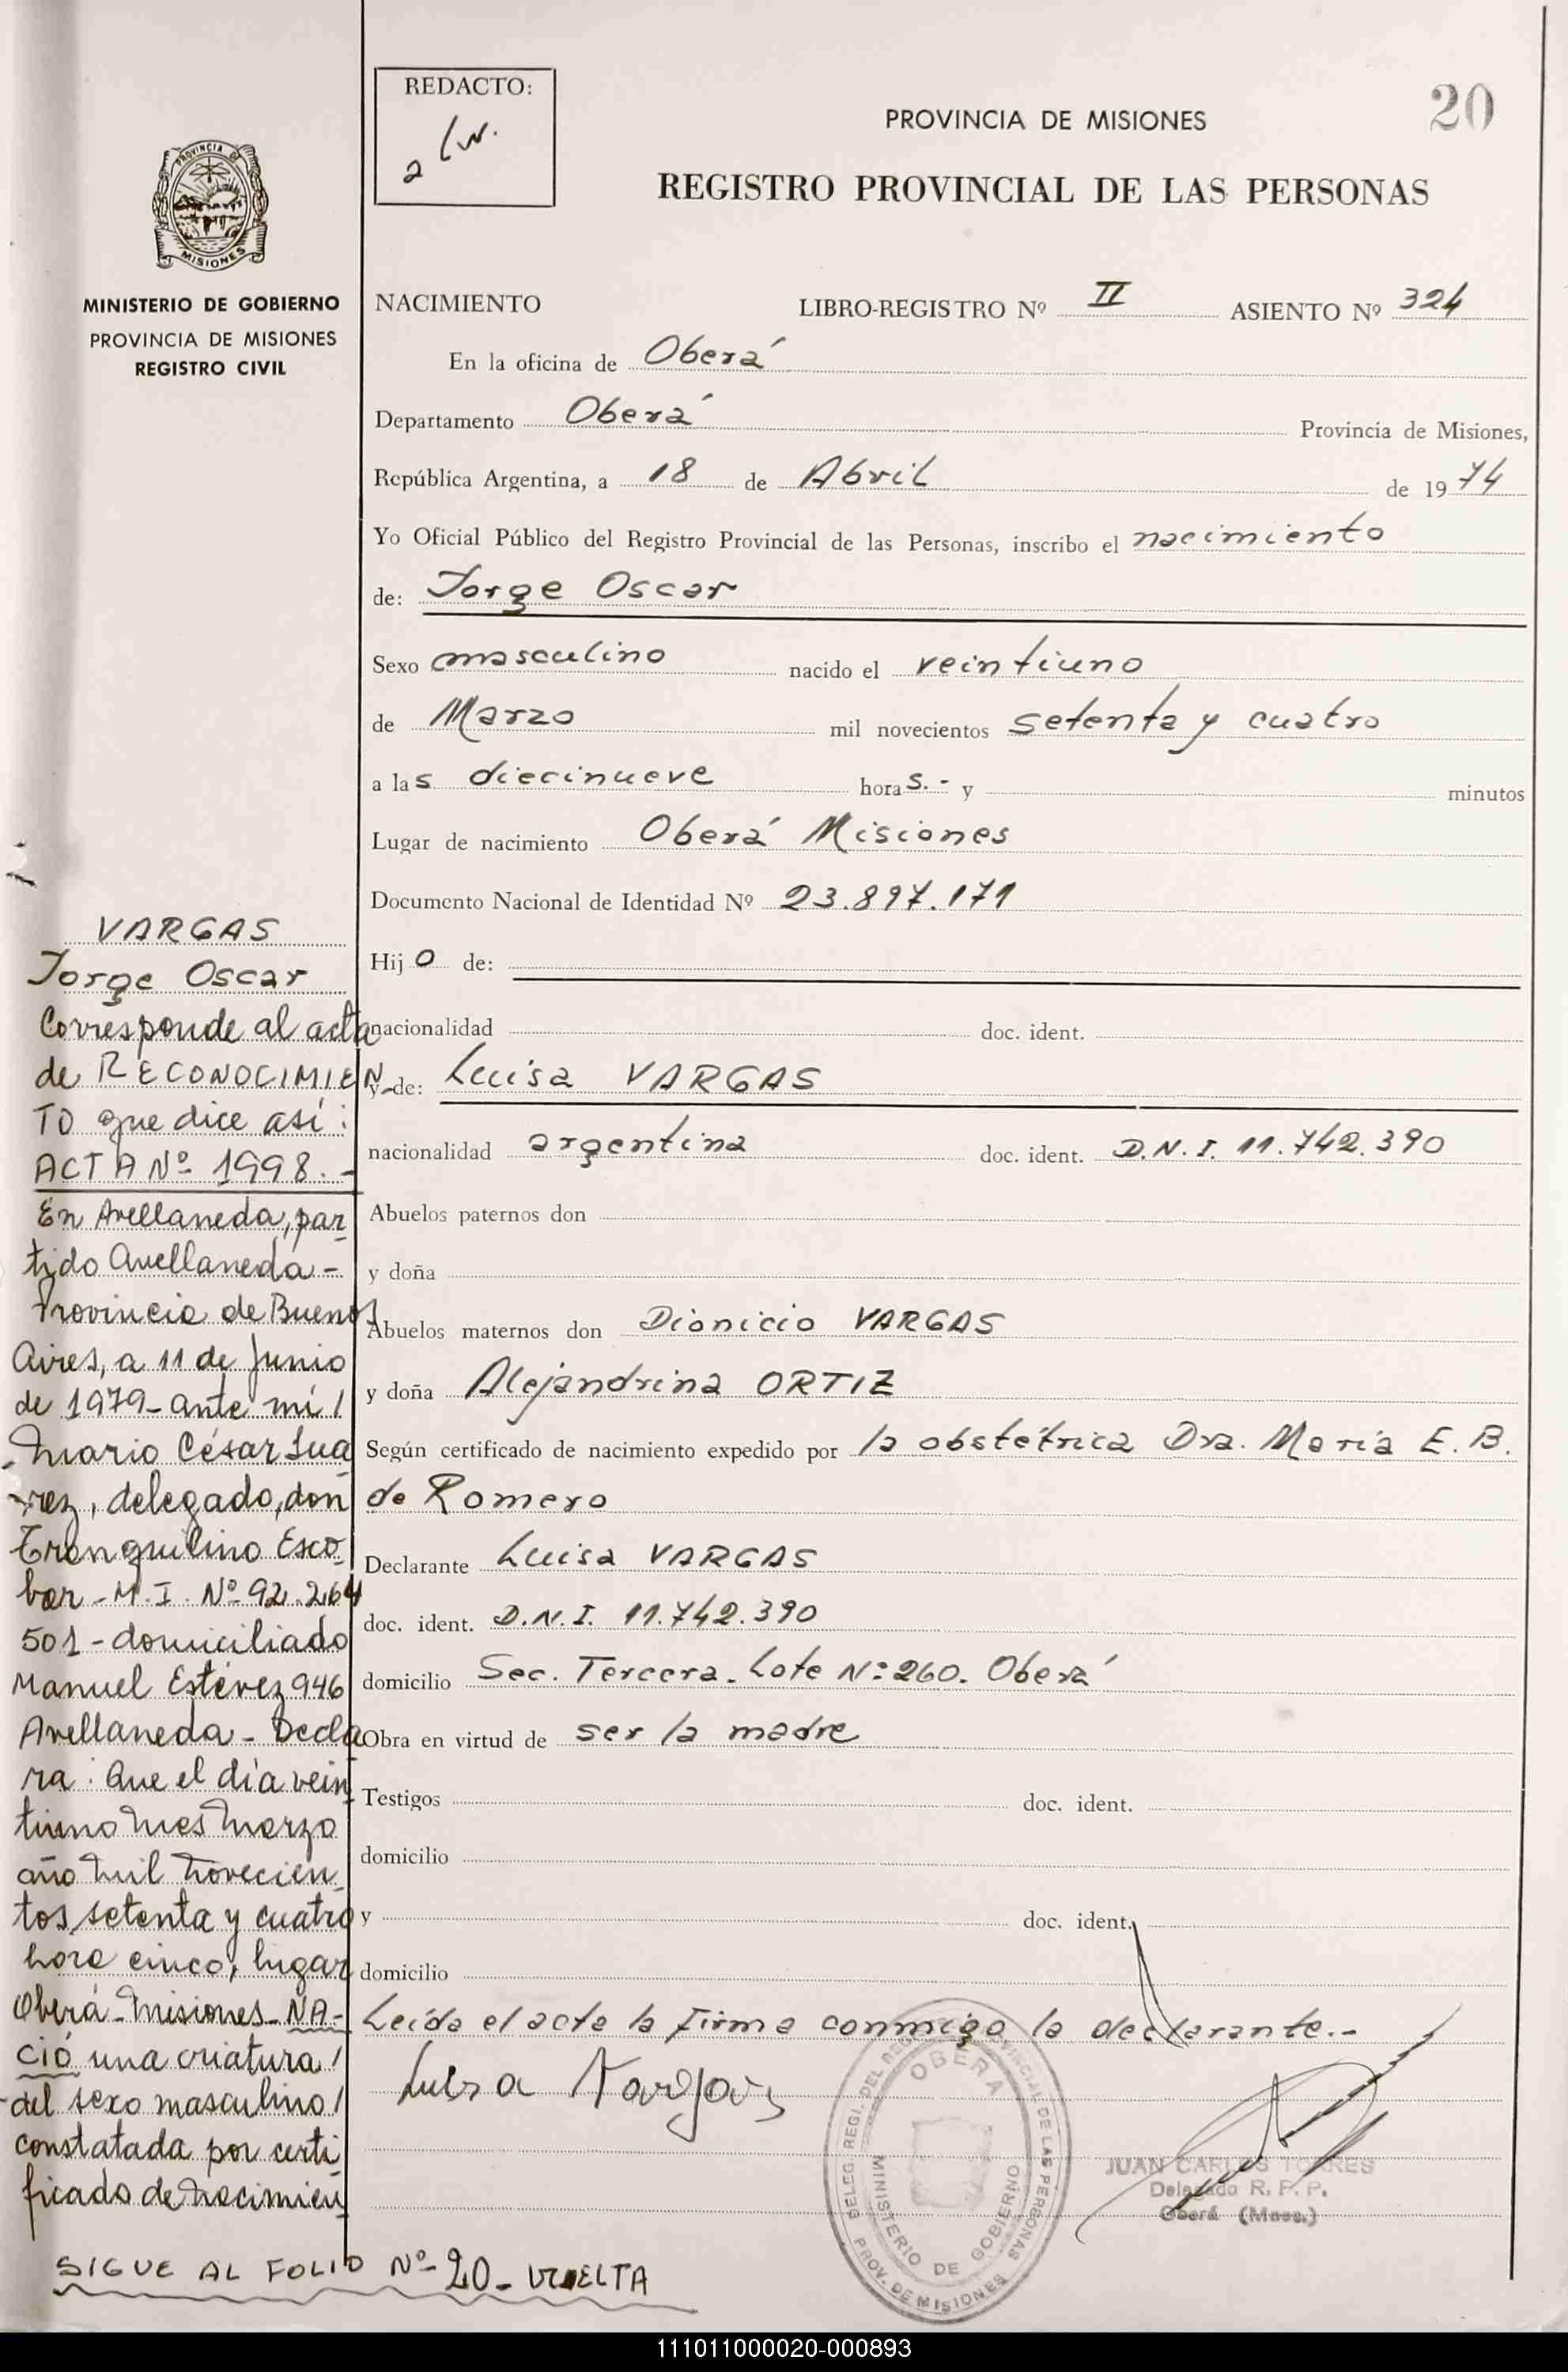 REDACTO:
PROVINCIA DE MISIONES
20
REGISTRO PROVINCIAL DE LAS PERSONAS
PROVINCIA DE
MISIONES
MINISTERIO DE GOBIERNO
PROVINCIA DE MISIONES
REGISTRO CIVIL
NACIMIENTO LIBRO-REGISTRO Nº II ASIENTO Nº 324
En la oficina de Oberá
Departamento Oberá Provincia de Misiones,
República Argentina, a 18 de Abril de 1974
Yo Oficial Público del Registro Provincial de las Personas, inscribo el nacimiento
de: Jorge Oscar
Sexo masculino nacido el veintiuno
de Marzo mil novecientos setenta y cuatro
a las diecinueve horas.- y minutos
Lugar de nacimiento Oberá Misiones
Documento Nacional de Identidad Nº 23.897.171
Hijo de:
nacionalidad doc. ident.
y de: Luisa VARGAS
nacionalidad argentina doc. ident. D.N.I. 11.742.390
Abuelos paternos don
y doña
Abuelos maternos don Dionicio VARGAS
y doña Alejandrina ORTIZ
Según certificado de nacimiento expedido por la obstétrica Dra. Maria E. B.
de Romero
Declarante Luisa VARGAS
doc. ident. D.N.I. 11.742.390
domicilio Sec. Tercera. Lote Nº 260. Oberá
Obra en virtud de ser la madre
Testigos doc. ident.
domicilio
y doc. ident.
domicilio
Leída el acta la firma conmigo la declarante.-
Luisa Vargas
DELEG. REGI. DEL REG. PROVINCIAL DE LAS PERSONAS
OBERA
MINISTERIO DE GOBIERNO
PROV. DE MISIONES
JUAN CARLOS TORRES
Delegado R. P. P.
Oberá (Mnes.)
VARGAS
Jorge Oscar
Corresponde al acta
de RECONOCIMIEN
TO que dice así:
ACTA Nº 1998.-
En Avellaneda, par
tido Avellaneda-
Provincia de Buenos
Aires, a 11 de Junio
de 1979- ante mí /
Mario César Sua
rez, delegado, don
Tranquilino Esco
bar - M.I. Nº 92.264
501 - domiciliado
Manuel Estévez 946
Avellaneda - Decla
ra: Que el día vein
tiuno mes marzo
año mil novecien
tos setenta y cuatro
hora cinco, lugar
Oberá-Misiones- NA-
CIÓ una criatura /
del sexo masculino /
constatada por certi
ficado de nacimien
SIGUE AL FOLIO Nº 20- VUELTA
111011000020-000893